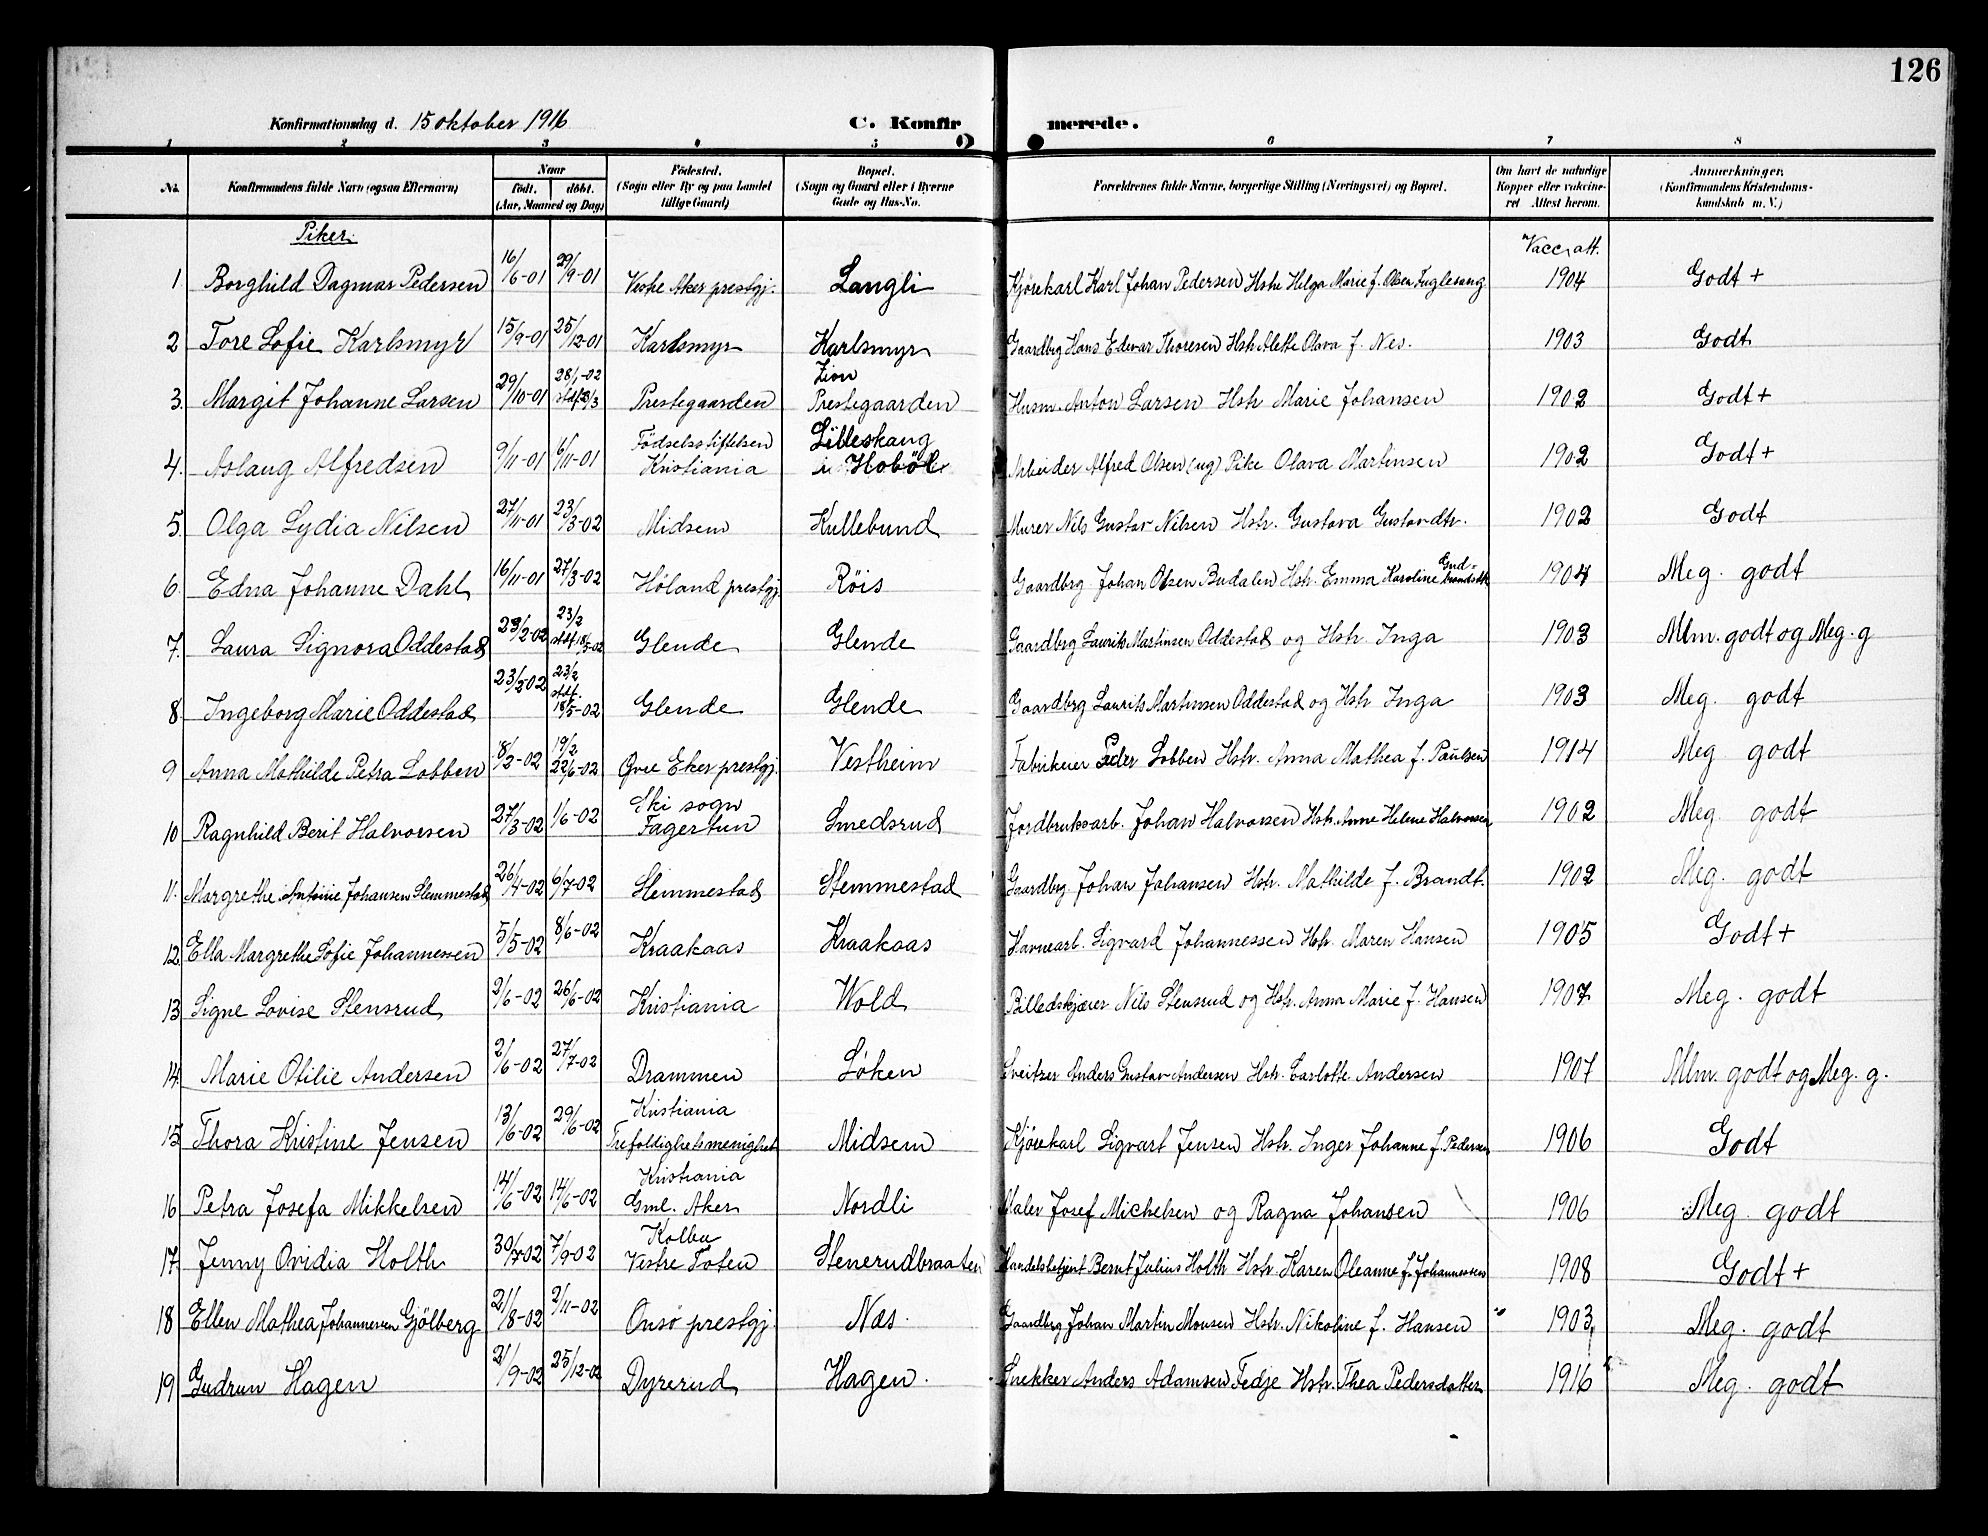 126
Konfirmationsdag d. 15 oktober 1916 C. Konfirmerede.
1 2 3 4 5 6 7 8
No. Konfirmandens fulde Navn (ogsaa Efternavn) Naar født. døbt. (Aar, Maaned og Dag) Fødested. (Sogn eller By og paa Landet tillige Gaard) Bopæl. (Sogn og Gaard eller i Byerne Gade og Hus-No. Forældrenes fulde Navne, borgerlige Stilling (Næringsvei) og Bopæl. Om havt de naturlige Kopper eller vakcineret Attest herom. Anmærkninger. (Konfirmandens Kristendomskundskab m. V.)
Piker. Vacc. att.
1 Borghild Dagmar Pedersen 16/6-01 29/9-01 Vestre Aker prestgj. Langli Kjørekarl Karl Johan Pedersen Hstr Helga Marie f. Olsen Fuglesang 1904 Godt +
2 Tore Sofie Karlsmyr 15/9-01 25/12-01 Karlsmyr Karlsmyr Gaardbrg Hans Edvar Thoresen Hstr Alette Olava f. Nes. 1903 Godt
3. Margit Johanne Larsen 29/10-01 28/1-02 stdf. /3 Prestegaarden Zion Prestegaarden Husm. Anton Larsen Hstr Marie Johansen 1902 Godt +
4. Aslaug Alfredsen 9/11-01 6/11-01 Födselsstiftelsen Kristiania Lilleskaug i Hobøl. Arbeider Alfred Olsen (ug) Pike Olava Martinsen 1902 Godt +
5. Olga Lydia Nilsen 27/11-01 23/3-02 Midsem Kullebund Murer Nils Gustav Nilsen Hstr. Gustava Gustavdtr. 1902 Godt
6. Edna Johanne Dahl 16/11-01 27/3-02 Høland prestgj. Røis Gaardbrg Johan Olsen Budalen Hstr. Emma Karoline Gudbrandsdtr 1904 Meg. godt
7. Laura Signora Oddestad 23/2-02 23/2 stdf. 18/5-02 Glende Glende Gaardbrg Laurits Martinsen Oddestad og Hstr. Inga 1903 Mlm. godt og Meg. g
8 Ingeborg Marie Oddestad 23/2-02 23/2 stdf. 18/5-02 Glende Glende Gaardbrg Laurits Martinsen Oddestad og Hstr Inga 1903 Meg. godt
9 Anna Mathilde Petra Lobben 8/2-02 19/2 22/6-02 Øvre Eker prestgj. Vestheim Fabrikeier Peder Lobben Hstr. Anna Mathea f. Paulsen 1914 Meg godt
10 Ragnhild Berit Halvorsen 27/3-02 1/6-02 Ski sogn Fagertun Smedsrud Jordbruksarb. Johan Halvorsen Hstr. Anne Helene Halvorsen 1902 Meg. godt
11. Margrethe Antonie Johansen Slemmestad 26/4-02 6/7-02 Slemmestad Slemmestad Gaardbrg. Johan Johansen Hstr. Mathilde f. Brandt. 1902 Meg. godt
12. Ella Margrethe Sofie Johannessen 5/5-02 8/6-02 Kraakaas Kraakaas Havnearb. Sigvard Johannessen Hstr. Maren Hansen 1905 Godt +
13 Signe Lovise Stensrud 2/6-02 26/6-02 Kristiania Wold Billedskjærer Nils Stensrud og Hstr. Anna Marie f. Hansen 1907 Meg. godt
14. Marie Otilie Andersen 2/6-02 27/7-02 Drammen Søken Sveitzer Anders Gustav Andersen Hstr. Carlotte Andersen 1907 Mlm. godt og Meg. g.
15 Thora Kristine Jensen 13/6-02 29/6-02 Kristiania Trefoldighetsmenighet Midsem Kjørekarl Sigvart Jensen Hstr. Inger Johanne f. Pedersen 1906 Godt
16 Petra Josefa Mikkelsen 14/6-02 14/6-02 Kristiania Gml. Aker Nordli Maler Josef Michelsen og Ragna Johansen 1906 Meg. godt
17. Jenny Ovidia Holth 30/7-02 7/9-02 Kolbu Vestre Toten Stenerudbraaten Handelsbetjent Bernt Julius Holth Hstr. Karen Oleanne f. Johannessen 1908 Godt +
18 Ellen Mathea Johannesen Gjölberg 21/8-02 2/11-02 Onsø prestgj. Næs. Gaardbrg Johan Martin Monsen Hstr. Nikoline f. Hansen 1903 Meg. godt
19 Gudrun Hagen 21/9-02 25/12-02 Dyrerud Hagen. Snekker Anders Adamsen Fedje Hstr. Thea Pedersdatter 1916 Meg. godt